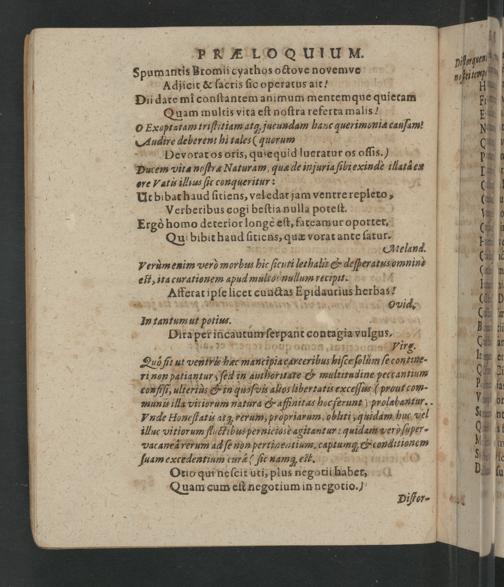 PRÆLOQUIUM.
Spumantis Bromii cyathos octove novemve
Adjicit & sacris sic operatus ait!
Dii date mî constantem animum mentemque quietam
Quam multis vita est nostra referta malis!
O Exoptatam tristitiam atq; jucundam hanc querimoniæ causam!
Audire deberent hi tales (quorum
Devorat os oris, quicquid lucratur os ossis.)
Ducem vitæ nostræ Naturam, quæ de injuria sibi exinde illatâ ex
ore Vatis illius sic conqueritur:
Ut bibat haud sitiens, vel edat jam ventre repleto,
Verberibus cogi bestia nulla potest.
Ergò homo deterior longè est, fateamur oportet,
Qui bibit haud sitiens, quæ vorat ante satur.
Meland.
Verùm enim verò morbus hic sicuti lethalis & desperatus omninò
est, ita curationem apud multos nullum recipit.
Afferat ipse licet cunctas Epidaurius herbas!
Ovid.
In tantum ut potius.
Dira per incautum serpant contagia vulgus.
Virg.
Quô fit ut ventris hæc mancipia carceribus hisce solùm se contine-
ri non patiantur, sed in authoritate & multitudine peccantium
confisi, ulteriùs & in quosvis alios libertatis excessus (prout com-
munis illa vitiorum natura & affinitas hoc ferunt) prolabantur.
Vnde Honestatis atq; rerum, propriarum, obliti, quidam huc vel
illuc vitiorum fluctibus perniciosè agitantur: quidam verò super-
vacaneâ rerum ad se non pertinentium, captumq; & conditionem
suam excedentium curâ (sic namq; est.
Otio qui nescit uti, plus negotii habet,
Quam cum est negotium in negotio.)
Distor-